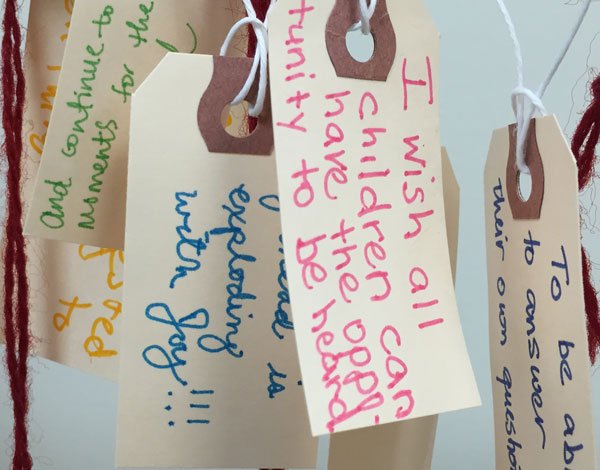 and continue to
moments for the
to
head is
exploding
with joy!!!
I wish all
children can
have the oppr-
tunity to be heard
To be ab
to answer
their own questio